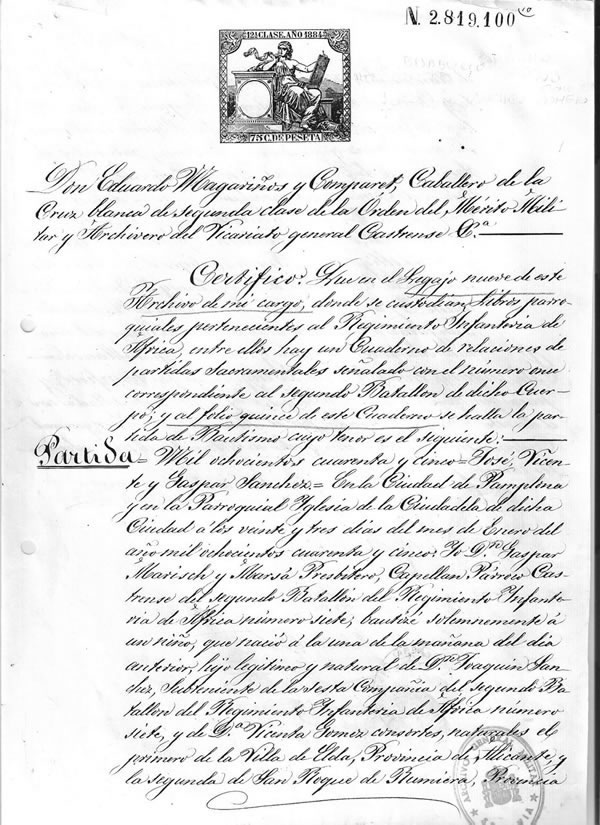 N. 2.819.100
12ª CLASE. AÑO 1884
75 C. DE PESETA
Don Eduardo Magariños y Comparet, Caballero de la
Cruz blanca de segunda clase de la Orden del Mérito Mili
tar y Archivero del Vicariato general Castrense &ª
Certifico: Que en el Legajo nueve de este
Archivo de mi cargo, donde se custodian Libros parro
quiales pertenecientes al Regimiento Infantería de
África, entre ellos hay un Cuaderno de relaciones de
partidas Sacramentales señalado con el número once
correspondiente al segundo Batallon de dicho Cuer
po; y al folio quince de este Cuaderno se halla la par
tida de Bautismo cuyo tenor es el siguiente:
Partida = Mil ochocientos cuarenta y cinco = José, Vicen
te y Gaspar Sanchez = En la Ciudad de Pamplona
y en la Parroquial Iglesia de la Ciudadela de dicha
Ciudad á los veinte y tres dias del mes de Enero del
año mil ochocientos cuarenta y cinco: Yo Dn Gaspar
Marisch y Marsá Presbítero, Capellan Párroco Cas
trense del segundo Batallón del Regimiento Infante
ria de África número siete, bauticé solemnemente á
un niño, que nació á la una de la mañana del dia
anterior, hijo legítimo y natural de Dn Joaquin San
chez, Subteniente de la sesta Compañia del segundo Ba
tallon del Regimiento Infanteria de África número
siete, y de Dª Vicenta Gomez consortes, naturales el
primero de la Villa de Elda, Provincia de Alicante, y
la segunda de San Roque de Rumiera, Provincia